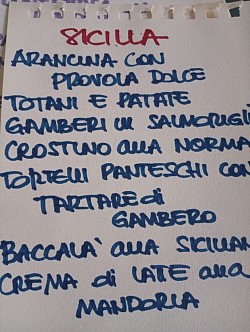 SICILIA
ARANCINA CON
PROVOLA DOLCE
TOTANI E PATATE
GAMBERI IN SALMORIGLI
CROSTINO ALLA NORMA
TORTELLI PANTESCHI CON
TARTARE di
GAMBERO
BACCALA' ALLA SICILIAN
CREMA di LATE ALLA
MANDORLA